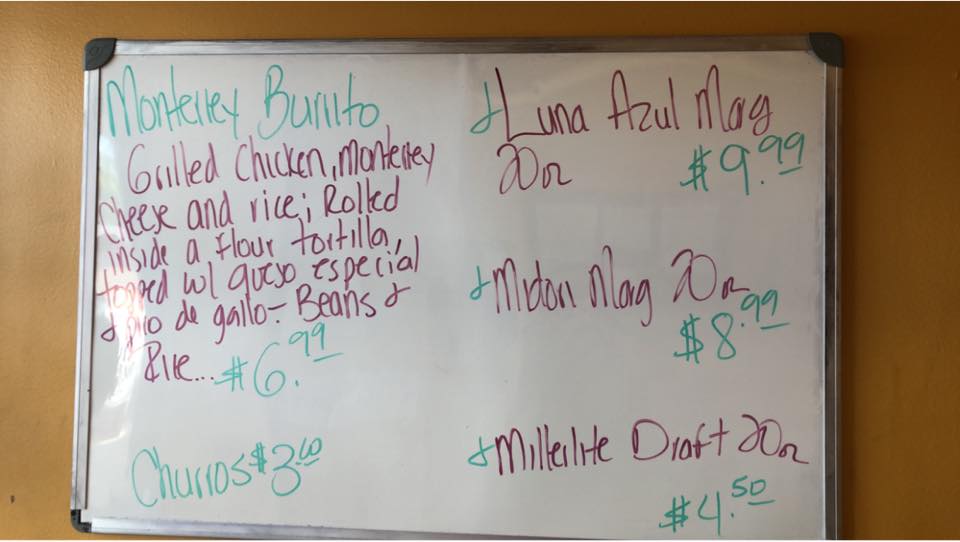 Monterrey Burrito
Grilled Chicken, Monterrey
Cheese and rice; Rolled
inside a flour tortilla,
topped w/ queso especial
& pico de gallo - Beans &
Rice... $6.99
Churros $3.60
& Luna Azul Marg
20oz $9.99
& Midori Marg 20oz
$8.99
& Millerlite Draft 20oz
$4.50